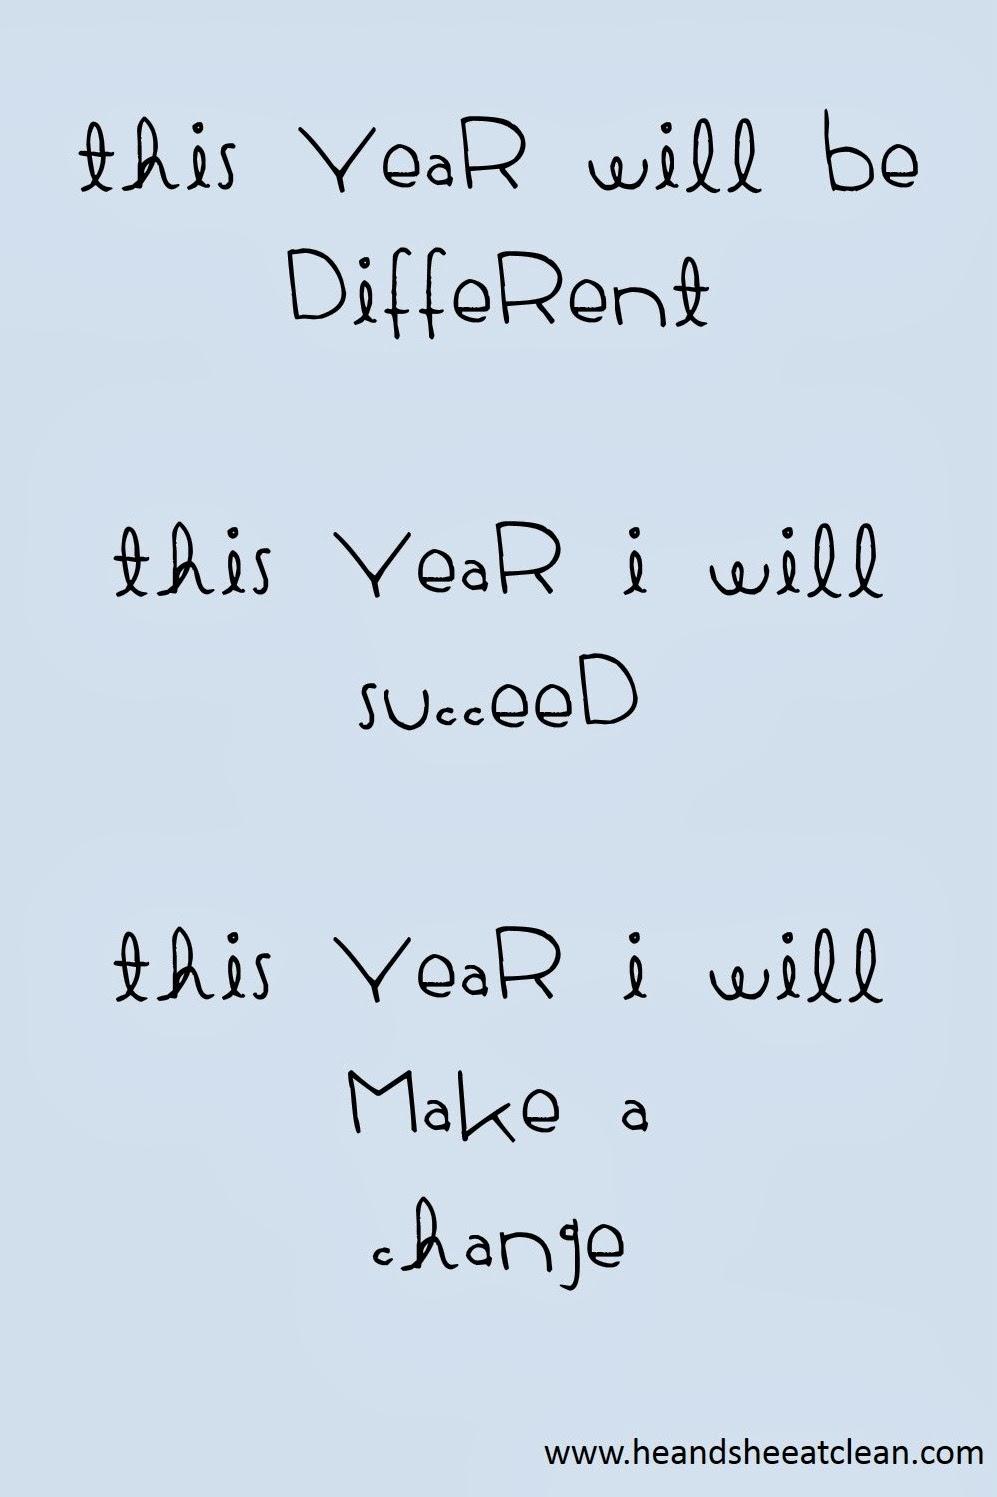 this YeaR will be
DiffeRent
this YeaR i will
succeeD
this YeaR i will
Make a
change
www.heandsheeatclean.com